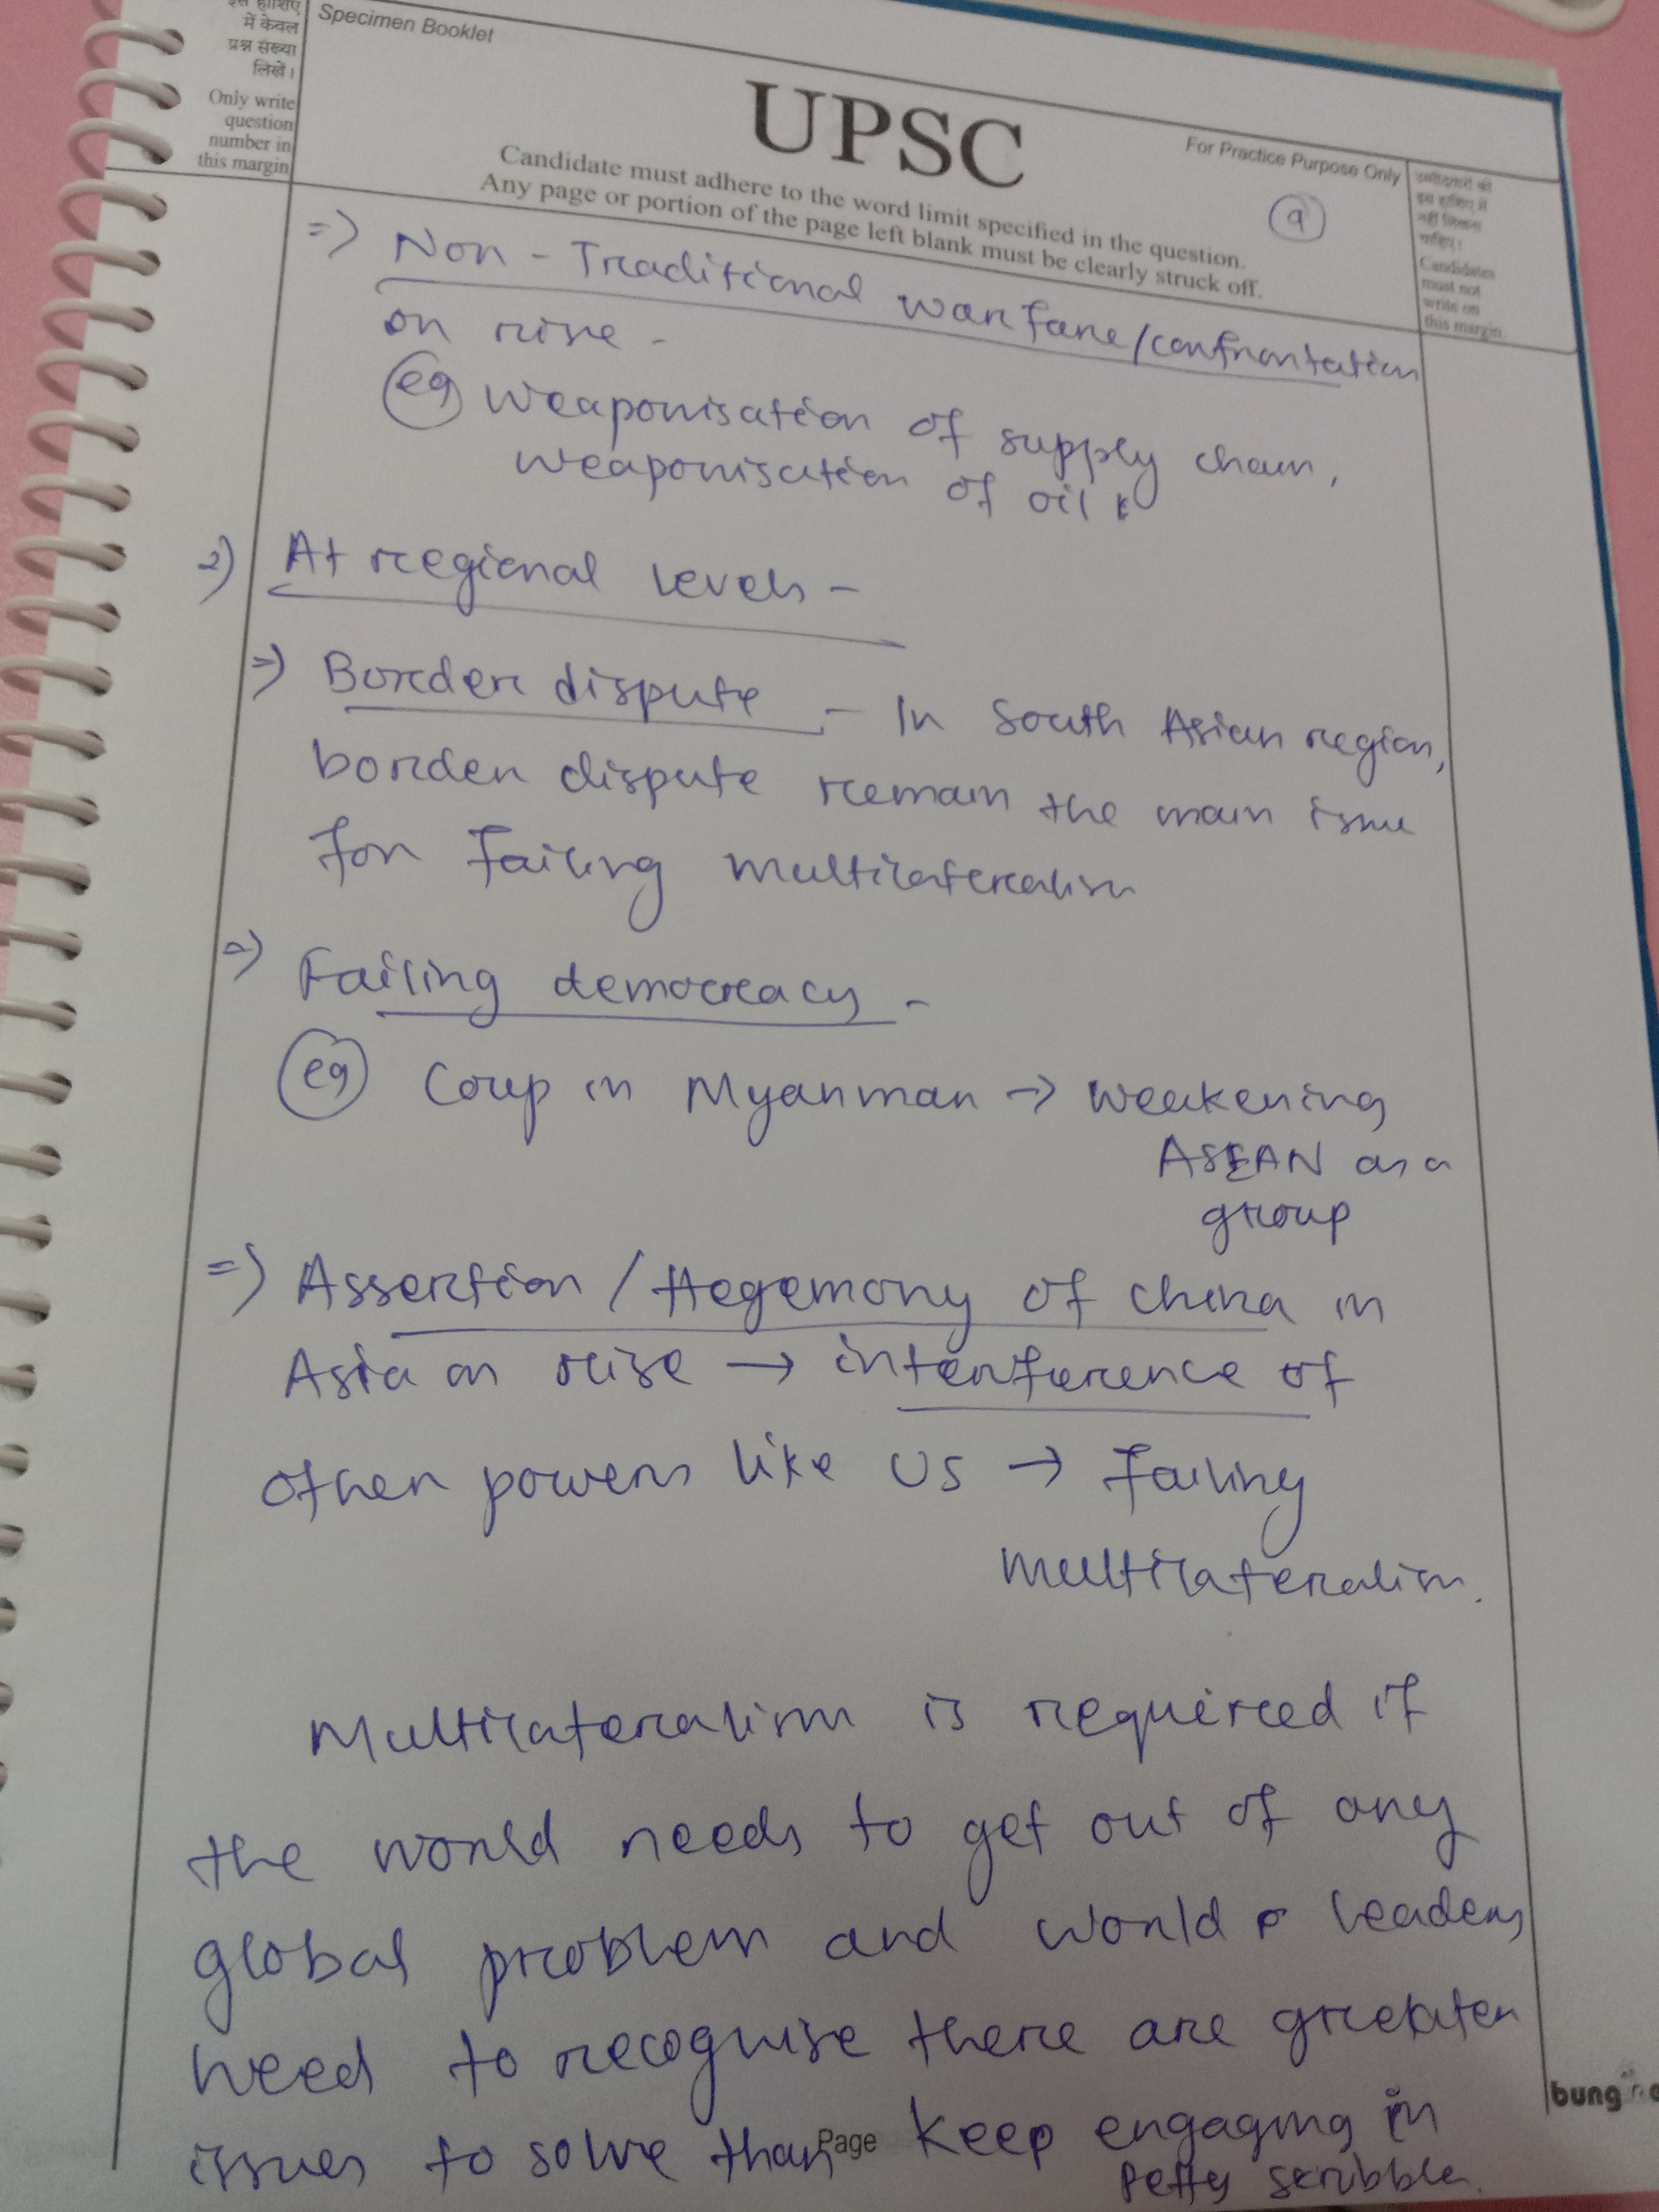 इस हाशिए
में केवल
प्रश्न संख्या
लिखें।
Only write
question
number in
this margin
Specimen Booklet
UPSC
For Practice Purpose Only
Candidate must adhere to the word limit specified in the question.
Any page or portion of the page left blank must be clearly struck off.
उम्मीदवारों को
इस हाशिए में
नहीं लिखना
चाहिए।
Candidates
must not
write on
this margin.
9
=) Non-Traditional warfare/confrontation
on rise -
eg weaponisation of supply chain,
weaponisation of oil
2) At regional levels -
=) Border dispute - In South Asian region,
border dispute remain the main issue
for failing multilateralism
=) Failing democracy -
eg Coup in Myanmar → weakening
ASEAN as a
group
=) Assertion / Hegemony of china in
Asia on rise → interference of
other powers like US → failing
multilateralism.
Multilateralism is required if
the world needs to get out of any
global problem and world leaders
need to recognise there are greater
issues to solve than keep engaging in
petty scribble.
Page
bung